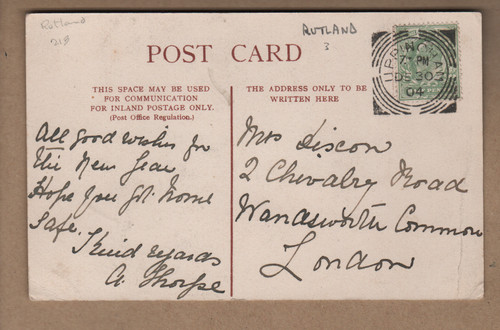 Rutland
RUTLAND
3
POST CARD
THIS SPACE MAY BE USED
FOR COMMUNICATION
FOR INLAND POSTAGE ONLY.
(Post Office Regulation.)
THE ADDRESS ONLY TO BE
WRITTEN HERE
UPPINGHAM
7 PM
DE 30
04
All good wishes for
The New Year
Hope you got home
Safe.
Kind regards
A. Thorpe
Mrs Liscon
2 Chivalry Road
Wandsworth Common
London